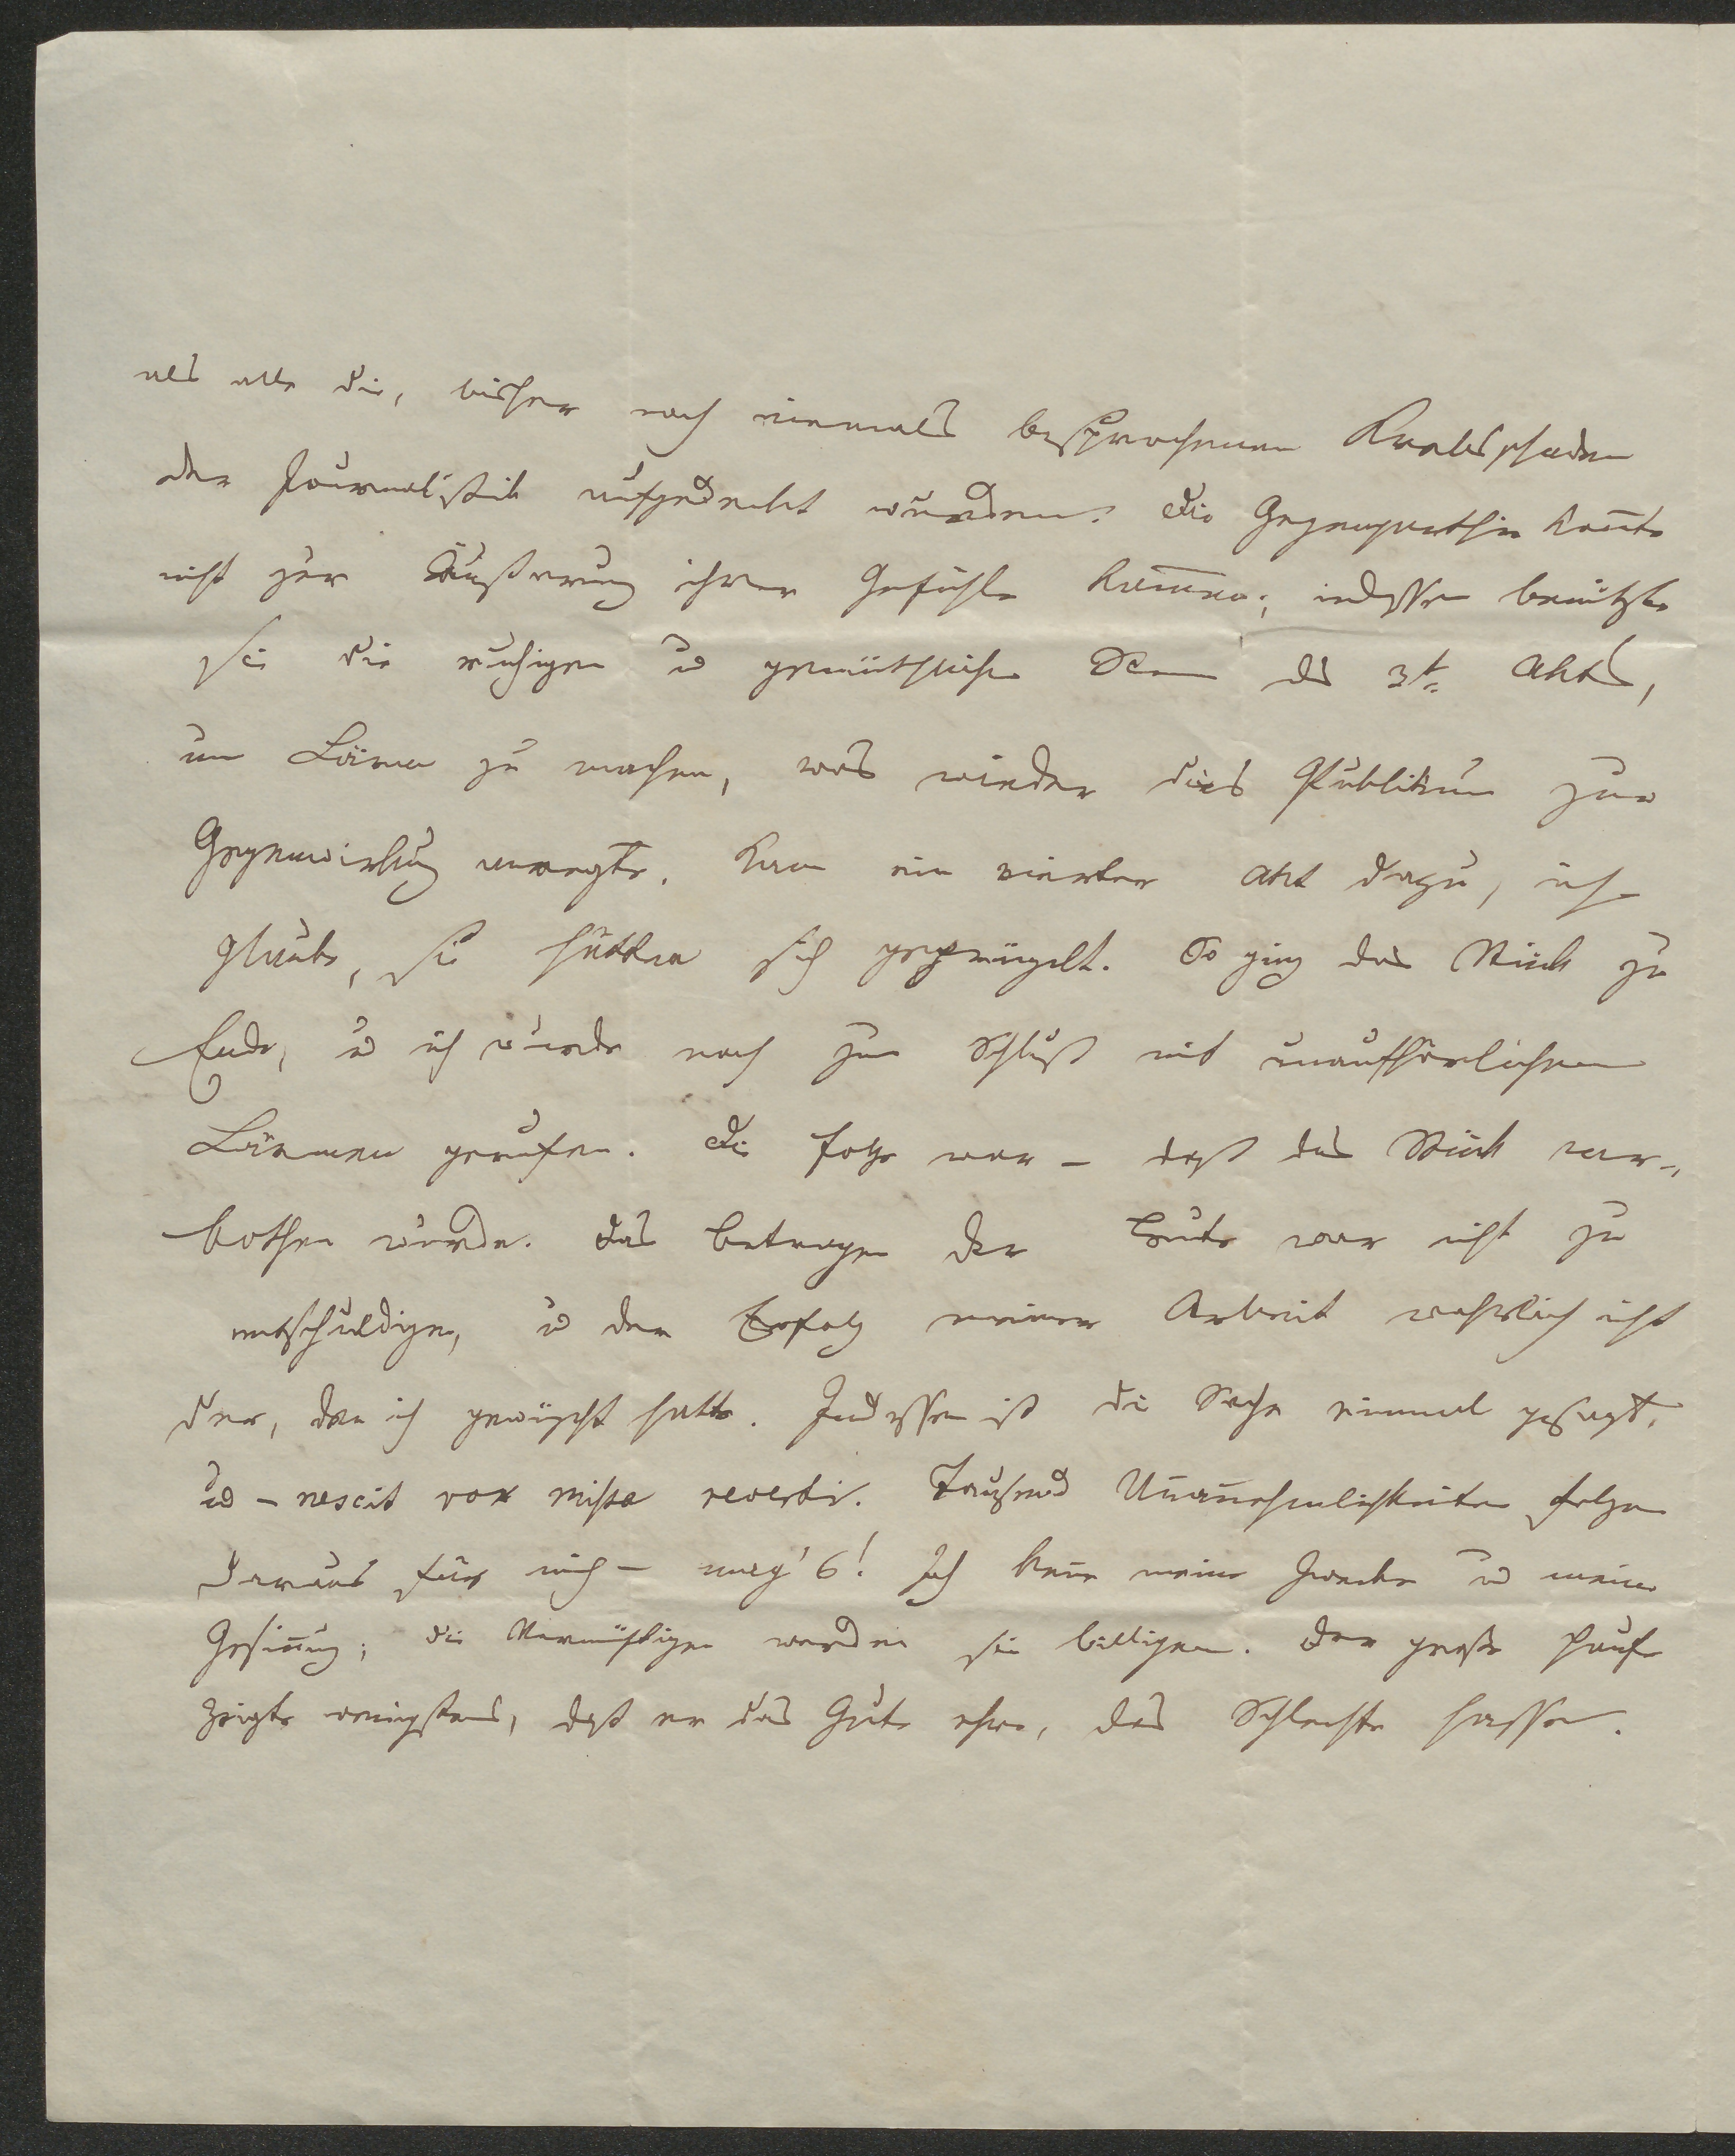 als alle die, bisher noch niemals besprochenen Krebsschäden
der Journalistik aufgedeckt wurden. Die Gegenparthie kon̅te
nicht zur Äußerung ihrer Gefühle kom̅en; indessen benützte
sie die ruhigen u gemüthliche Scen des 3t. Akts,
um Lärm zu machen, was wieder das Publikum zur
Gegenwirkung anregte. Kam ein vierter Akt dazu, ich
glaube, sie hätten sich geprügelt. So ging das Stück zu
Ende, u ich wurde noch zum Schluß mit unaufhörlichem
Lärmen gerufen. Die Folge war – daß das Stück ver-
bothen wurde. Das Betragen der Leute war nicht zu
entschuldigen, u der Erfolg meiner Arbeit wahrlich nicht
der, den ich gewünscht hatte. Indessen ist die Sache einmal gesagt,
u – nescit vox missa reverti. Tausend Un̅an̅ehmlichkeiten folgen
daraus für mich – mag's! Ich ken̅e meine Zwecke u meine
Gesin̅ung; die Vernünftigen werden sie billigen. Der große Haufe
zeigte wenigstens, daß er das Gute ehre, das Schlechte hasse.